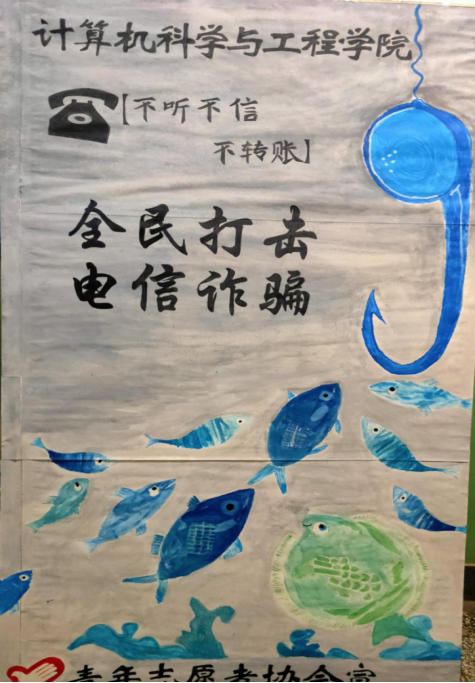 计算机科学与工程学院
【不听不信
不转账】
全民打击
电信诈骗
青年志愿者协会宣